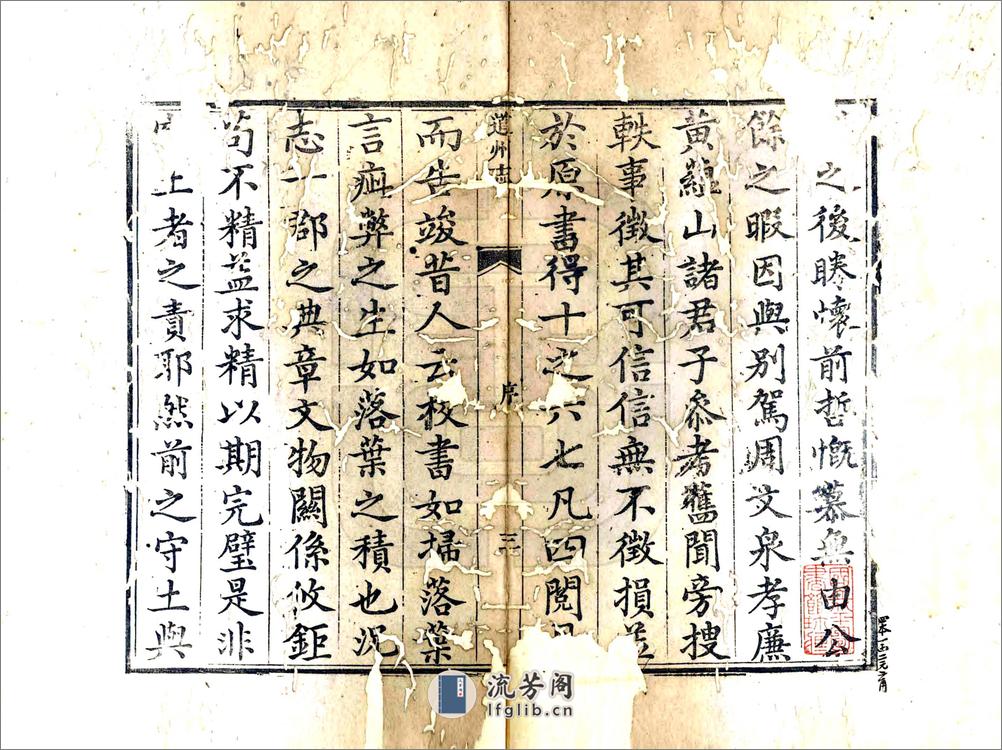 之後睠懷前哲慨慕無由公
餘之暇因與別駕周文泉孝廉
黃蘿山諸君子叅考舊聞旁搜
軼事徵其可信信無不徵損益
於原書得十之六七凡四閱月
道州志
序
三
而告竣昔人云校書如掃落葉
言疵弊之生如落葉之積也況
志一郡之典章文物關係攸鉅
苟不精益求精以期完璧是非
上者之責耶然前之守土與
流芳阁
lfglib.cn